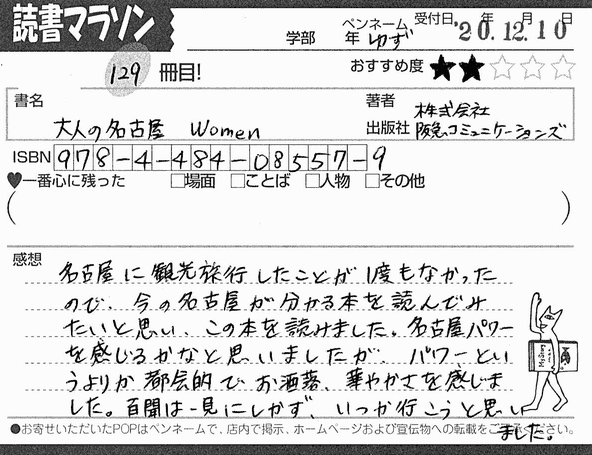 読書マラソン
学部 年 ペンネーム ゆず 受付日 '20年12月10日
129 冊目!
おすすめ度 ★★☆☆☆
書名 大人の名古屋 Women
著者 出版社 株式会社
阪急コミュニケーションズ
ISBN 978-4-484-08557-9
♥一番心に残った □場面 □ことば □人物 □その他
( )
感想
名古屋に観光旅行したことが1度もなかった
ので、今の名古屋が分かる本を読んでみ
たいと思い、この本を読みました。名古屋パワー
を感じるかなと思いましたが、パワーとい
うよりか都会的でお洒落、華やかさを感じま
した。百聞は一見にしかず、いつか行こうと思い
ました。
Mystery
●お寄せいただいたPOPはペンネームで、店内で掲示、ホームページおよび宣伝物への転載をご了承ください。